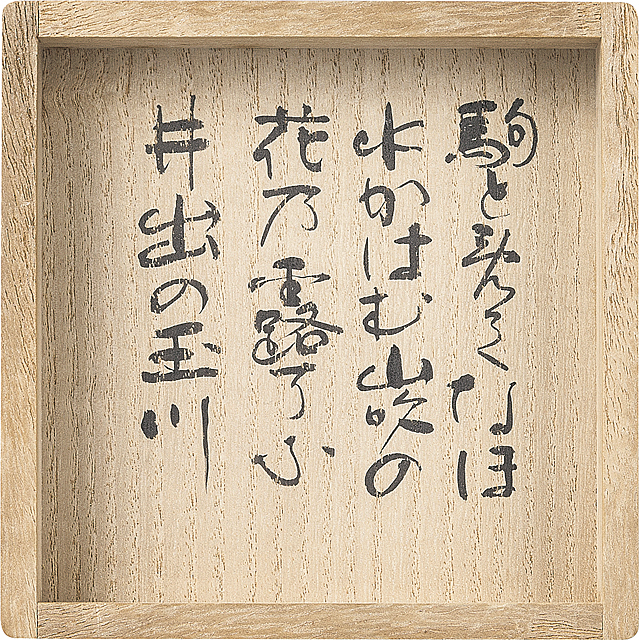 駒とめてなほ
水かはむ山吹の
花乃露そふ
井出の玉川